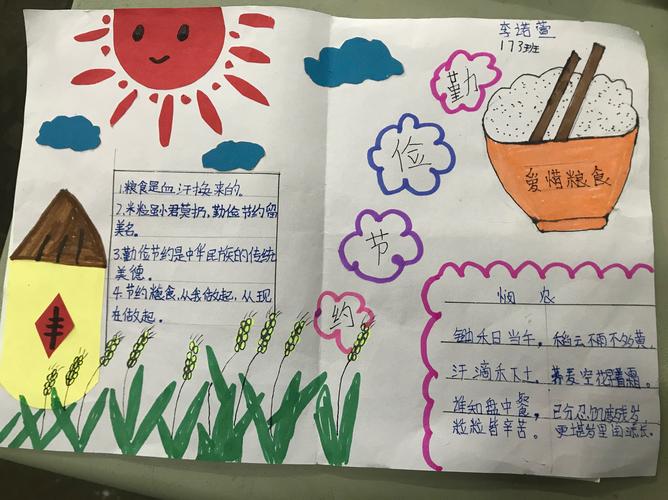 李诺萱
173班
勤
俭
节
约
爱惜粮食
丰
1.粮食是血汗换来的.
2.米粒虽小君莫扔，勤俭节约留
美名。
3.勤俭节约是中华民族的传统
美德。
4.节约粮食，从我做起，从现
在做起。
悯农
锄禾日当午。稻云不雨不多黄，
汗滴禾下土。荞麦空花早着霜。
谁知盘中餐，已分忍饥度残岁
粒粒皆辛苦。更堪岁里闰添长。